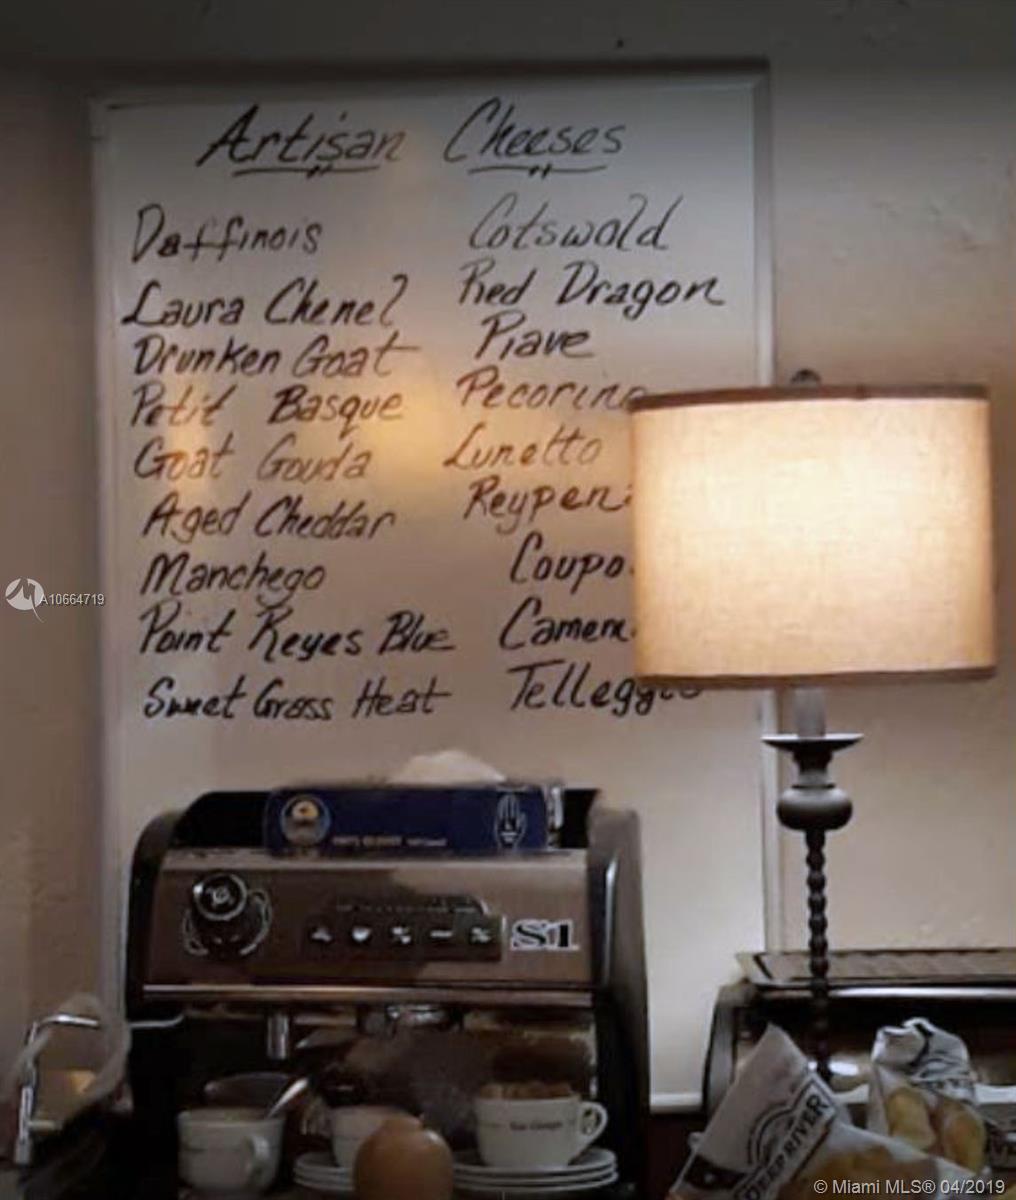 Artisan Cheeses
Daffinois
Laura Chenel
Drunken Goat
Petit Basque
Goat Gouda
Aged Cheddar
Manchego
Point Reyes Blue
Sweet Grass Heat
Cotswold
Red Dragon
Piave
Pecorino
Lunetto
Reypen
Coupo
Camem
Telleggio
S1
DEEP RIVER
A10664719
© Miami MLS® 04/2019